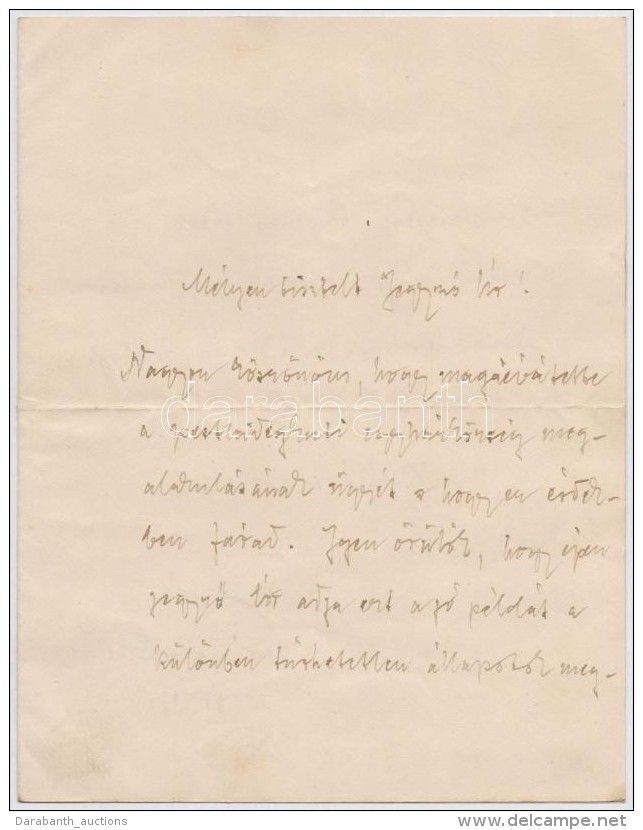 Mélyen tisztelt Jegyző Úr!
Nagyon köszönöm, hogy magáévá tette
a pesthidegkuti egyházközség meg-
alakulásának ügyét s hogy ez érdek-
ben fárad. Igen örülök, hogy épen
jegyző Úr adja ezt a jó példát a
különben tűrhetetlen állapotok meg-
darabanth
Darabanth_auctions
delcampe.net